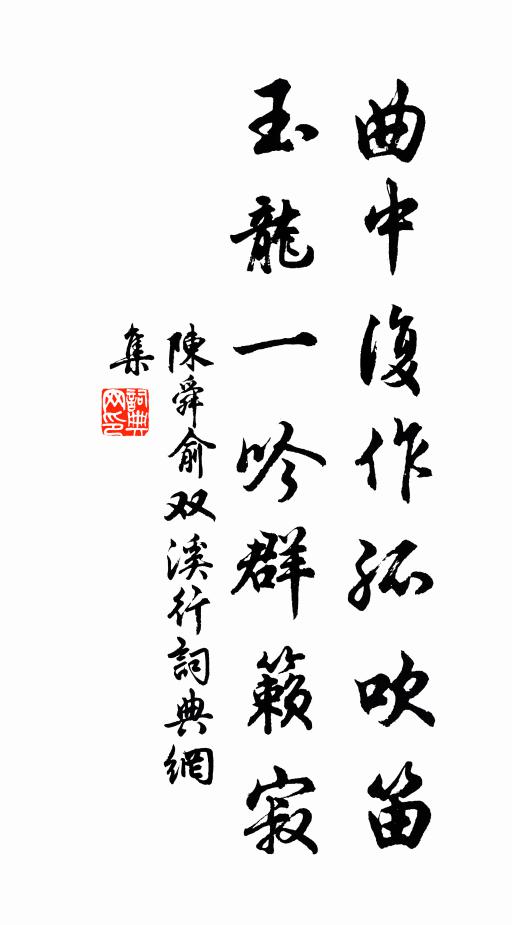 曲中復作孤吹笛
玉龍一吟群籟寂
陳舜俞双溪行詞典網
集
詞典
网印